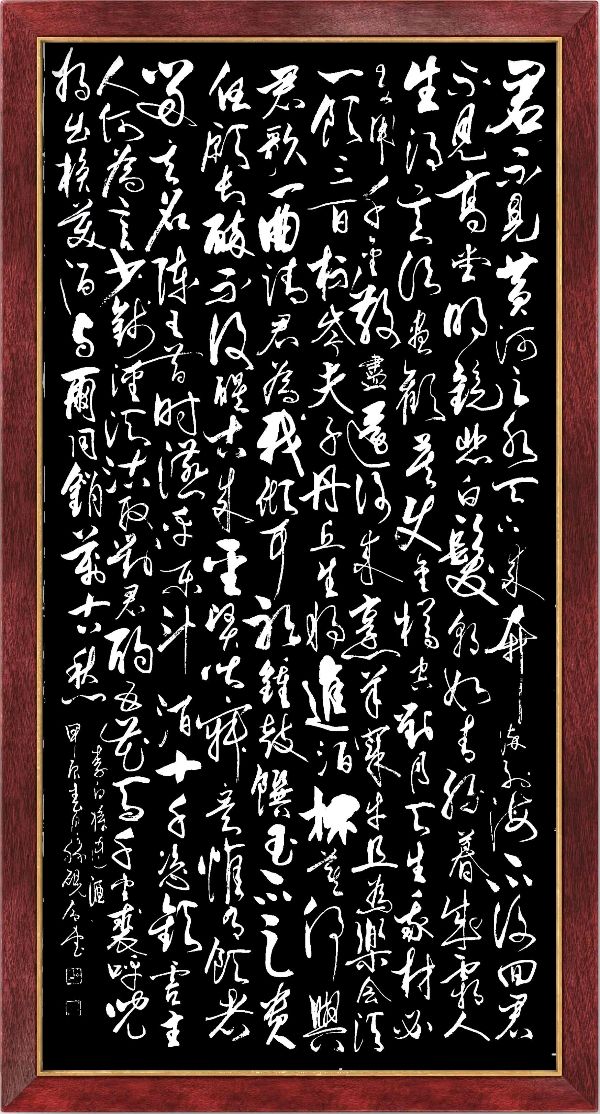 君不見黃河之水天上來奔流到海不復回君
不見高堂明鏡悲白髮朝如青絲暮成雪人
生得意須盡歡莫使金樽空對月天生我材必
有用千金散盡還復來烹羊宰牛且為樂會須
一飲三百杯岑夫子丹丘生將進酒杯莫停與
君歌一曲請君為我傾耳聽鐘鼓饌玉不足貴
但願長醉不復醒古來聖賢皆寂寞惟有飲者
留其名陳王昔時宴平樂斗酒十千恣歡謔主
人何為言少錢徑須沽取對君酌五花馬千金裘呼兒
將出換美酒與爾同銷萬古愁
李白將進酒
甲辰春月